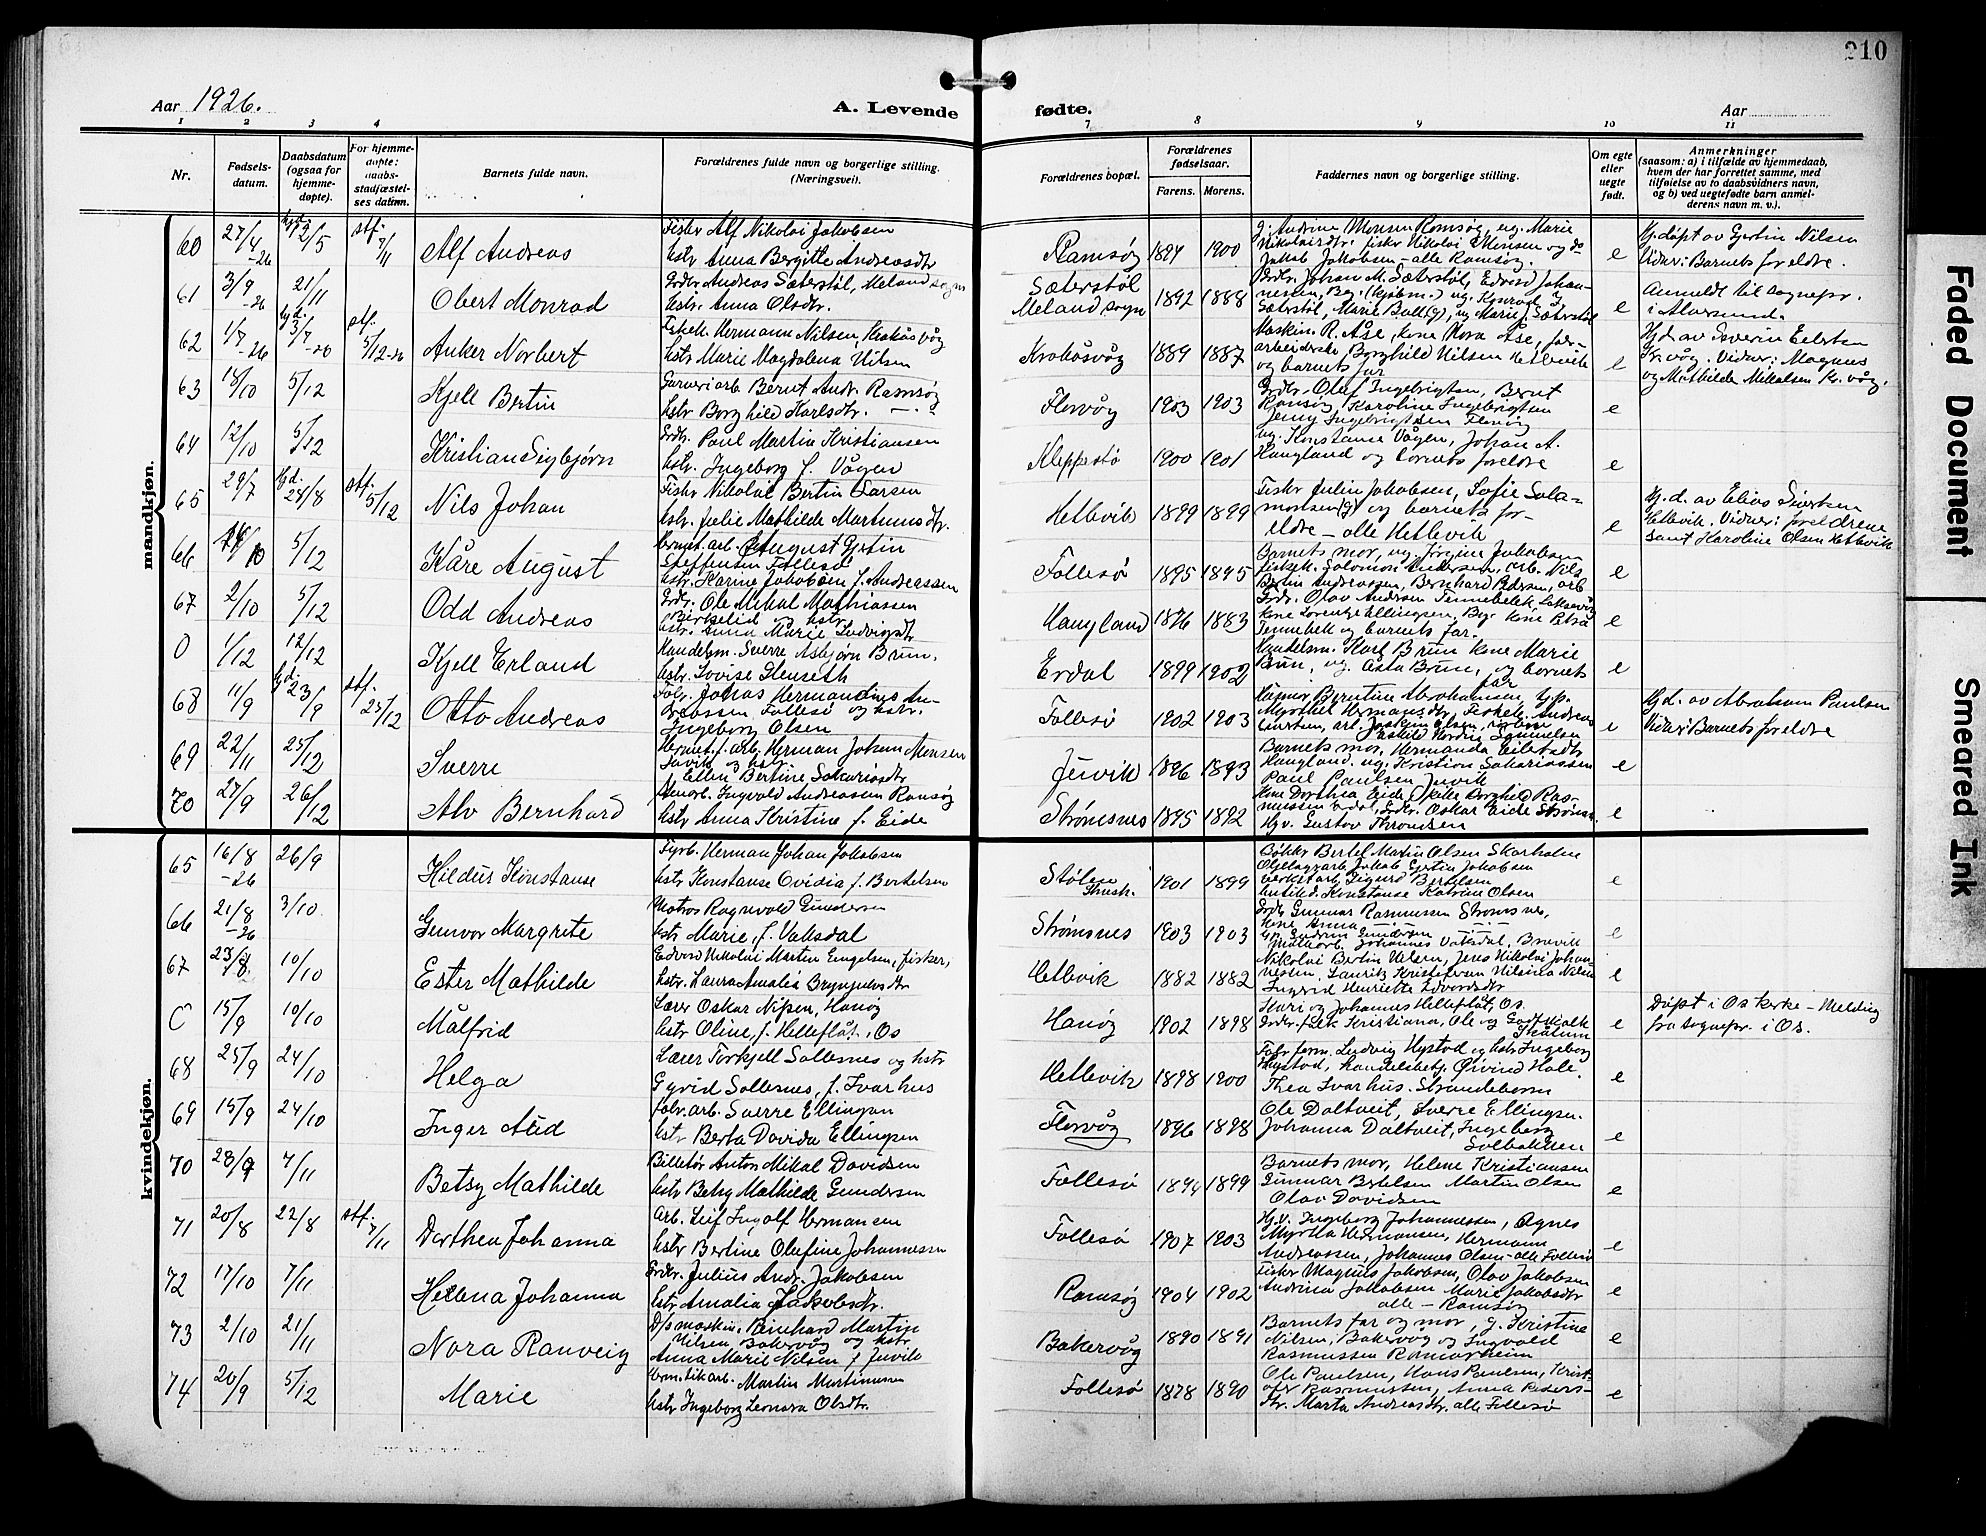 210
Aar 1926.
A. Levende
fødte.
Aar
1 2 3 4
7 8 9 10 11
Nr.
Fødsels-
datum.
Daabsdatum
(ogsaa for
hjemme-
døpte).
For hjemme-
døpte:
daabs-
stadfæstel-
ses datum.
Barnets fulde navn.
Forældrenes fulde navn og borgerlige stilling.
(Næringsvei).
Forældrenes bopæl.
Forældrenes
fødselsaar.
Farens. Morens.
Faddernes navn og borgerlige stilling.
Om egte
eller
uegte
født.
Anmerkninger
(saasom: a) i tilfælde av hjemmedaab,
hvem der har forrettet samme, med
tilføielse av to daabsvidners navn,
og b) ved uegtefødte barn anmel-
derens navn m. v.).
mandkjøn.
60 27/4 -26 hjd. 12/5 stf. 7/11 Alf Andreas
Fisker Alf Nikolai Jakobsen
hstr Anna Bergitte Andreasdtr
Ramsøy 1894 1900
g. Andrine Monsen Ramsøy, ug. Marie
Nikolaisdtr. fisker Nikolai Monsen og do
Jakob Jakobsen - alle Ramsøy.
e
Hj.døpt av Gjertin Nilsen
Vidner: Barnets foreldre.
61 3/9 -26 21/11 Obert Monrad
Grdbr Andreas Sæterstøl, Meland sogn
hstr. Anna Olsdtr.
Sæterstøl
Meland sogn 1892 1888
Grdbr. Johan M. Sæterstøl, Edvard Johan-
nessen, Bø;
e
Anmeldt til sognepr.
i Alversund.
62 1/7 -26 hjd. 3/7 -26 stf. 5/12 -26 Anker Norbert
Fiskeh. Hermann Nilsen, Krokåsvåg
hstr Marie Magdalena Nilsen
Krokåsvåg 1889 1887
Maskin. R. Åse, kone Nora Åse, før-
arbeiderske, Borghild Nilsen Hetlevik
og barnets far
e
Hj.d av Severin Eilertsen
Kr.våg. Vidner: Magnus
og Mathilde Mikkalsen Kr. våg.
63 18/10 5/12 Kjell Bertin
Garveriarb. Bernt Andr. Ramsøy
hstr Borghild Karlsdtr. - . -
Florvåg 1903 1903
Grdbr. Olaf Ingebrigtsen, Bernt
Ramsøy, Karoline Ingebrigtsen
Jenny Ingebrigtsen Florvåg
e
64 12/10 5/12 Kristian Sigbjørn
Grdbr. Paul Martin Kristiansen
hstr. Ingeborg f. Vågen
Kleppestø 1900 1901
ug. Konstanse Vågen, Johan A.
Haugland og barnets foreldre
e
65 29/7 hjd. 24/8 stf. 5/12 Nils Johan
Fisker Nikolai Bertin Larsen
hstr. Julie Mathilde Martinusdtr.
Hetlevik 1899 1899
Fisker Julin Jakobsen, Sofie Sala-
monsen(g) og barnets for-
eldre - alle Hetlevik
e
Hj. d. av Elias Sivertsen
Hetlevik. Vidner: foreldrene
samt Karoline Olsen Hetlevik
66 5/12 Kåre August
Hermet. arb. August Gjertin
Steffensen Follesø
hstr. Karine Jakobsen f. Andreassen
Follesø 1895 1895
Barnets mor, ug. Jørgine Jakobsen
fiskeh. Solomon Andersen, arb. Nils
Bertin Andreassen, Bernhard Pedersen, arb
e
67 2/10 5/12 Odd Andreas
Grdbr. Ole Mikal Mathiassen
Birkelid og hstr
hstr. Anna Marie Ludvigsdtr
Haugland 1876 1883
Grdbr. Olav Andersen Tennebekk, Laksevåg
kone Lorentze Ellingsen, Bg. kone Petra
Tennebek og barnets far.
e
0 1/12 12/12 Kjell Erland
Handelsm. Sverre Asbjørn Brun,
hstr. Lovise Stenseth
Erdal 1899 1902
Handelsm. Karl Brun kone Marie
Brun, ug. Asta Brun, og barnets
far
e
68 11/9 hjd. 23/9 stf. 25/12 Otto Andreas
Fabr. Johas Hermandines An-
dreassen Follesø og hstr.
Ingeborg Olsen
Follesø 1902 1903
e
Hj.d. av Abraham Paulsen
Vidner: Barnets foreldre
69 22/11 25/12 Sverre
Hermet.f. arb. Herman Johan Monsen
Juvik og hstr.
Ellen Bertine Sakariasdtr
Juvik 1896 1893
Barnets mor, Hermanda Eilertsdtr
Haugland. ug. Kristian Sakariassen
Paul Paulsen Juvik
e
70 27/9 26/12 Alv Bernhard
Stenarb. Ingvald Andreassen Ramsøy
hstr Anna Kristine f. Eide
Strømsnes 1895 1892
Kone Dorthea Eide, pike Borghild Ras-
mussen Erdal, Grdbr. Oskar Eide Strømsn.
Hgv. Gustav Throndsen
e
kvindekjøn.
65 16/8 -26 26/9 Hildur Konstanse
Fyrb. Herman Johan Jakobsen
hstr Konstanse Ovidia f. Bertelsen
Stølen
Strush. 1901 1899
Bøkker Bertel Martin Olsen Skarholm
Oljelagerarb. Jakob Gjertin Jakobsen
verkstarb. Sigurd Bertelsen
butikd. Konstanse Katrine Olsen
e
66 21/8 -26 3/10 Gunvor Margrete
Matros Ragnvald Gundersen
hstr Marie, f. Vaksdal
Strømsnes 1903 1903
Grdb Gunnar Rasmussen Strømsnes,
kone Anna - - -
Johannes Vaksdal, Brevik
e
67 23/8 10/10 Ester Mathilde
Edvard Nikolai Martin Engelsen, fisker,
hstr. Laura Amalia Brynjulvsdtr
Hetlevik 1882 1882
Nikolai Bertin Nilsen, Jens Nikolai Johan-
nessen, Lauritz Kristofersen Nilsina Nilsen
Ingrid Henriette Edvardsdtr
e
C 15/9 10/10 Målfrid
Lærer Oskar Nipen, Hanøy
hstr Oline, f. Helleflåt, Os
Hanøy 1902 1898
Kari og Johannes Helleflåt, Os.
e
Døpt i Os kirke - Melding
fra sognepr. i Os.
68 25/9 24/10 Helga
Lærer Torkjell Sollesnes og hstr
Gyrid Sollesnes, f. Ivarhus
Hetlevik 1898 1900
Fabr. form. Ludvig Hystad og hstr Ingeborg
Hystad, handelsbetj. Øivind Hole.
Thea Ivarhus. Strandebarm
e
69 15/9 24/10 Inger Aud
fabr. arb. Sverre Ellingsen
hstr Berta Davida Ellingsen
Florvåg 1896 1898
Ole Daltveit, Sverre Ellingsen.
Johanna Daltveit, Ingeborg
Solbakken
e
70 28/9 7/11 Betsy Mathilde
Billetør Anton Mikal Davidsen
hstr Betsy Mathilde Gundersen
Follesø 1894 1899
Barnets mor, Helene Kristiansen
Gunnar Bertelsen Martin Olsen
Olav Davidsen
e
71 20/8 22/8 stf. 7/11 Dorthea Johanna
Arb. Leif Ingolf Hermansen
hstr Bertine Olufine Johannessen
Follesø 1907 1903
Hjv. Ingeborg Johannessen, Agnes
Myrtha Hermansen, Hermann
Andreassen, Johannes Olsen - alle Follesø
e
72 17/10 7/11 Helena Johanna
Grdbr. Julius Andr. Jakobsen
hstr Amalia Jakobsdtr.
Ramsøy 1904 1902
Fisker Magnus Jakobsen, Olav Jakobsen
Andrina Jakobsen Marie Jakobsdtr
alle - Ramsøy
e
73 2/10 21/11 Nora Ranveig
D/s maskin. Reinhard Martin
Nilsen Bakervåg og hstr
Anna Marie Nilsen f. Juvik
Bakervåg 1890 1891
Barnets far og mor, g. Kristine
Nilsen, Bakervåg og Ingvald
Rasmussen Ramsøyheim
e
74 20/9 5/12 Marie
Martin Martinussen
hstr Ingeborg Leonora Olsdtr.
Follesø 1878 1890
Ole Paulsen, Hans Paulsen, Krist-
ofer Rasmussen, Anna Peders-
dtr. Marta Andreasdtr. alle Follesø
e
Faded Document
Smeared Ink